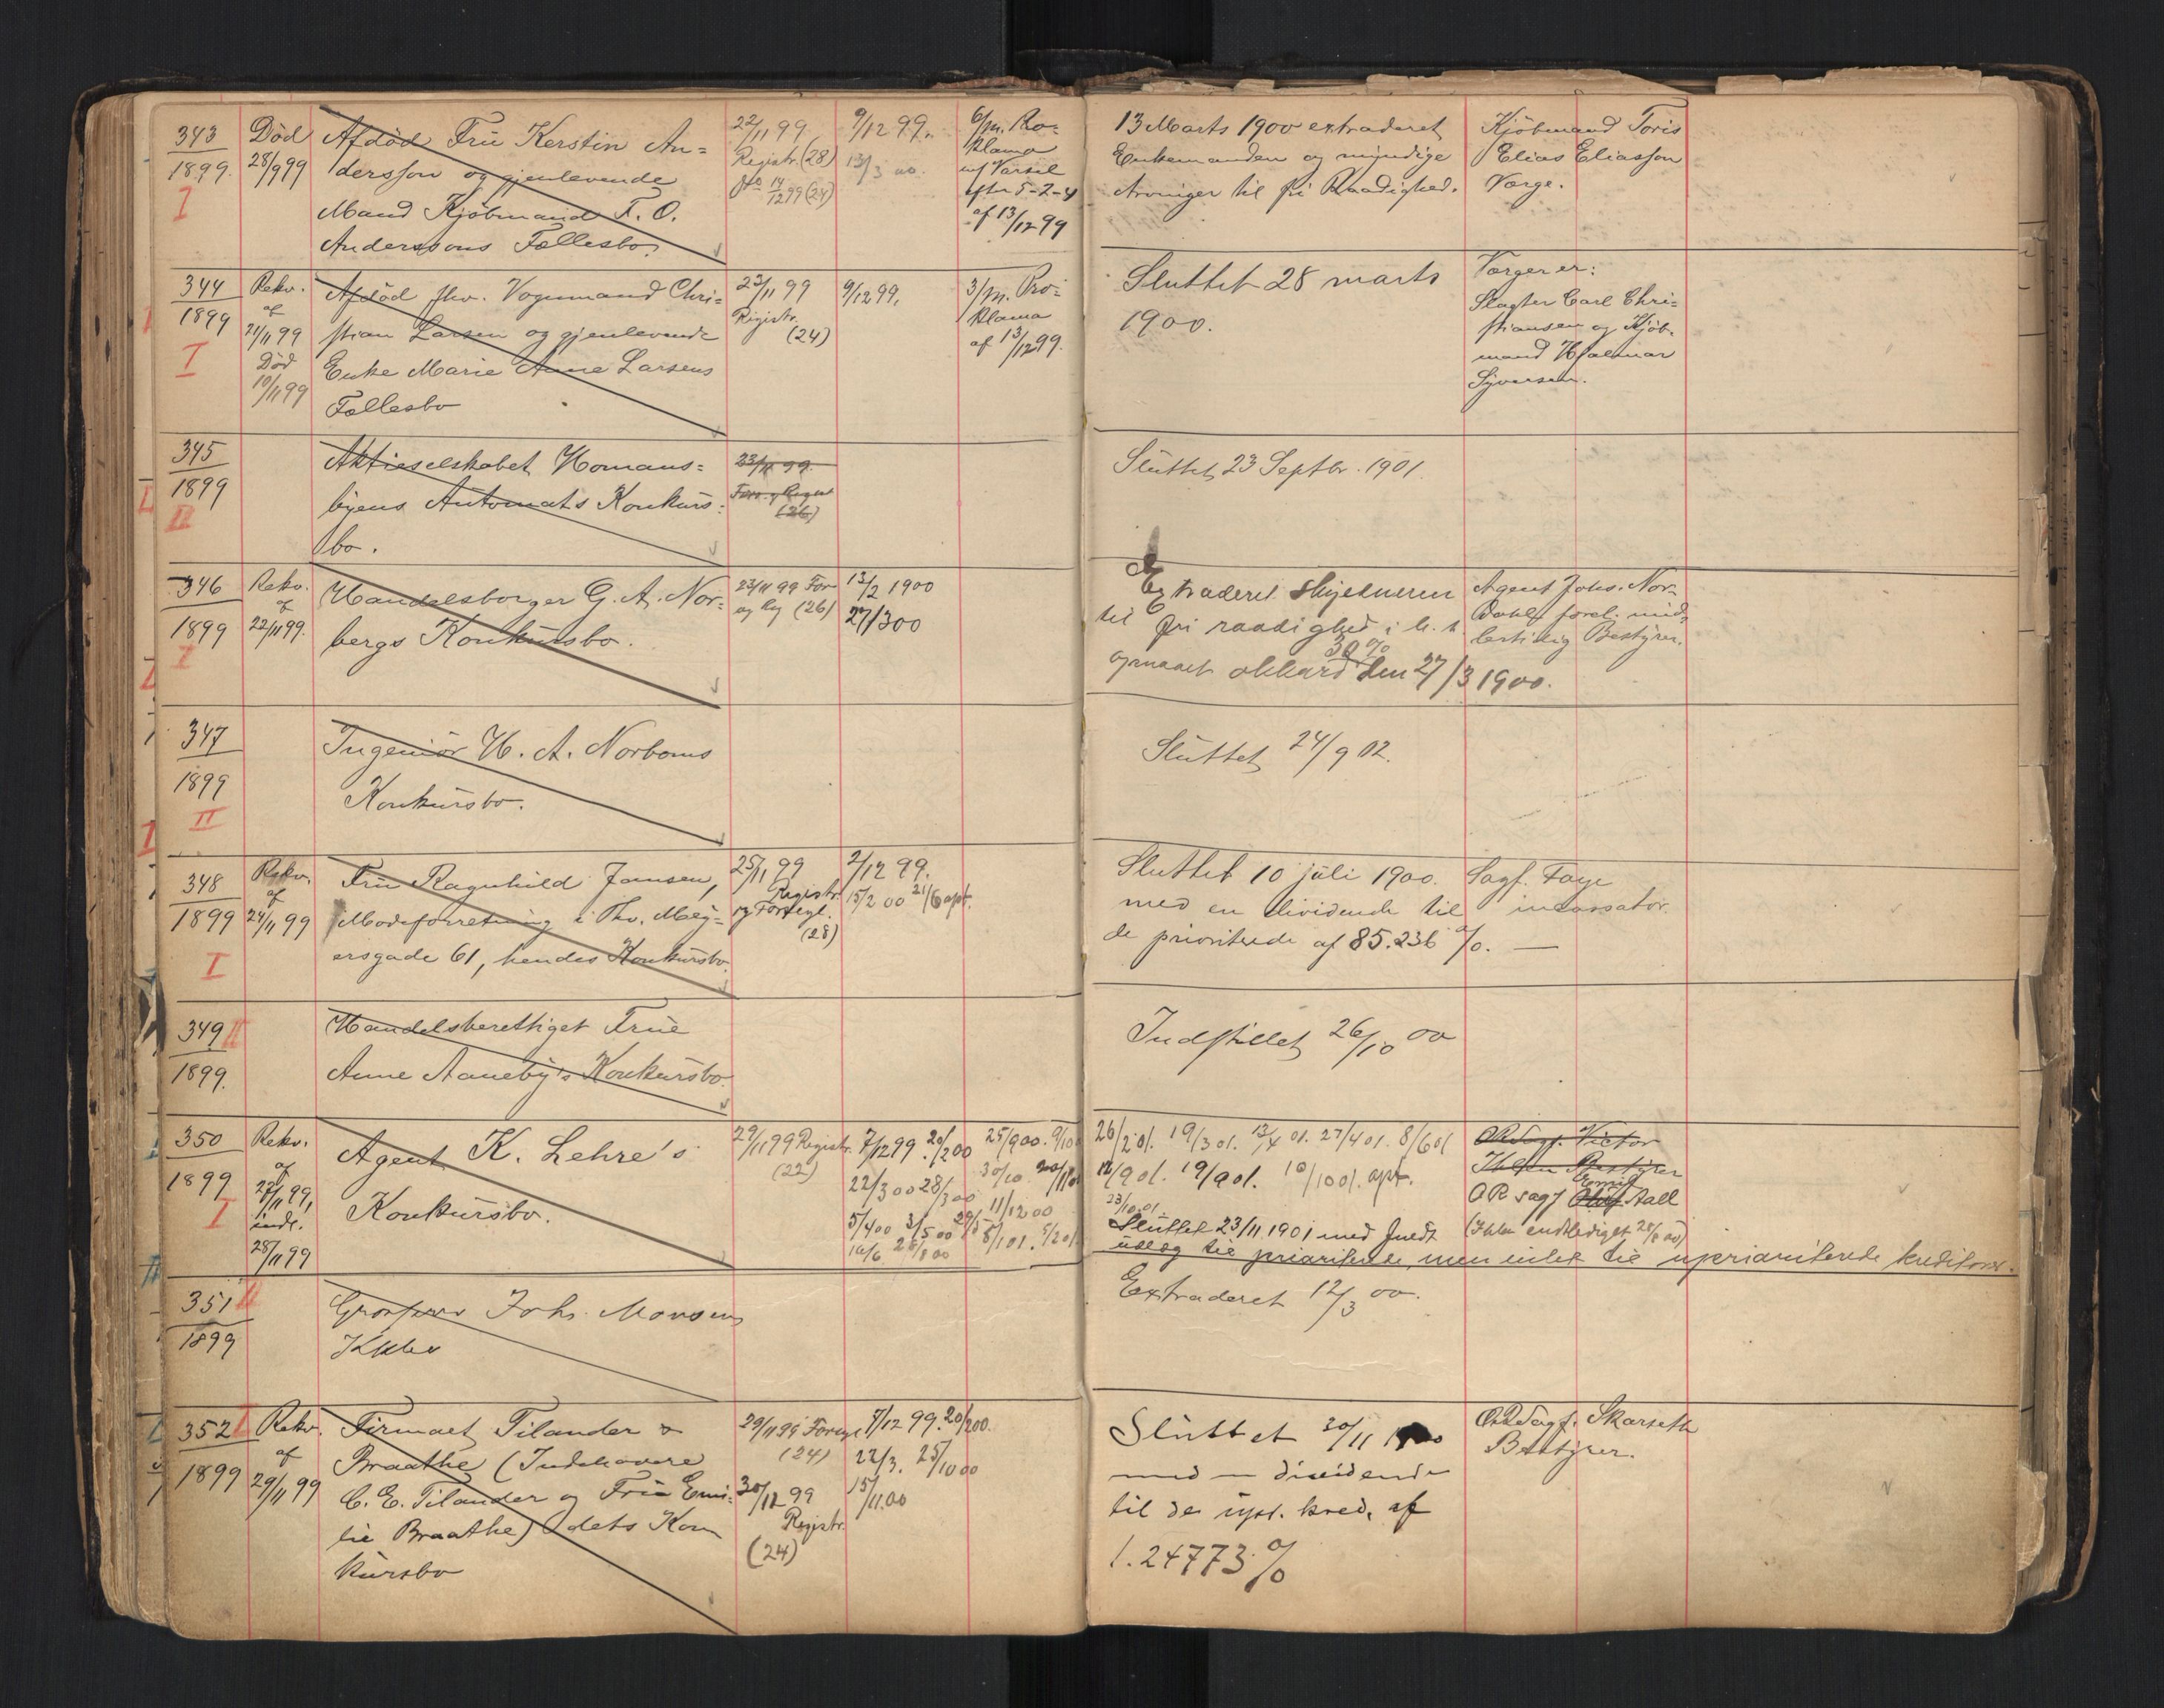 343
1899.
I
Død
28/9 99
Afdöd Frü Kerstin An=
dersson og gjenlevende
Mand Kjöbmand F. O.
Anderssons Fællesbo.
22/11 99
Registr. (28)
14/12 99 (24)
9/12 99.
13/3 00.
6/m. Pro=
klama
m/ Varsel
efter 5-2-4
af 13/12 99
13 Marts 1900 extraderet
Enkemanden og myndige
Arvinger til fri Raadighed.
Kjöbmand Toris
Elias Eliasson
Værge.
344
1899
I
Rekv.
af
21/11 99
Död
10/11 99
Afdöd fhv. Vognmand Chri=
stian Larsen og gjenlevende
Enke Marie Anne Larsens
Fællesbo
22/11 99
Registr.
(24)
9/12 99.
3/m. Pro=
klama
af 13/12 99.
Sluttet 28 marts
1900.
Værger er:
Slagter Carl Chri=
stiansen og Kjöb-
mand Hjalmar
Syversen.
345
1899
II
Aktieselskabet Homans=
byens Automats Konkürs=
bo.
23/11 99.
(26)
Slüttet 23 Septbr. 1901.
346
1899
I
Rekv.
af
22/11 99.
Handelsborger G. A. Nor=
bergs Konkürsbo.
23/11 99 For
og Reg (26)
13/2 1900
27/3 00
Extraderet skyldneren
til fri raadighed i h. t.
opnaaet akkord 30 % den 27/3 1900.
Agent Johs. Nor-
dahl forel. mid-
lertidig Bestyrer.
347
1899
II
Ingeniör H. A. Norboms
Konkürsbo.
Slüttet 24/9 02.
348
1899
I
Rekv.
af
24/11 99
Frü Ragnhild Jansen,
Modeforretning i Thv. Mey-
ersgade 61, hendes Konkürsbo.
25/11 99
Registr.
og Forsegl.
(28)
2/12 99.
15/2 00 21/6 opt.
Sluttet 10 jüli 1900.
med en dividende til
de prioriterede af 85.236 %. —
Sagf. Faye
incassator.
349 II
1899.
Handelsberettiget Früe
Anne Aaneby's Konkürsbo.
Indstillet 26/10 00
350
1899
I
Rekv.
af
27/11 99,
indk.
28/11 99
Agent K. Lehre's
Konkürsbo.
29/11 99 Registr.
(22)
7/12 99. 20/2 00
22/3 00 28/3 00
5/4 00 3/5 00
25/9 00.
30/10
11/12 00
8/1 01.
26/2 01. 19/3 01. 13/4 01. 27/4 01. 8/6 01
12/9 01. 19/9 01. 10/10 01. opt.
23/10 01.
Slüttet 23/11 1901 med fuldt
udlæg til prioriterede, men intet til uprioriterede kreditorer.
ORSagf. Victor
Ihlen Bestyrer
OR sagf Olüf Aall
(Ihlen entlediget 28/8 00)
351 II
1899
Grosserer Johs. Monsens
Kkbo
Extraderet 12/3 00.
352 I
1899
Rekv.
af
29/11 99
Firmaet Tilander &
Braathe (Indehavere
C. E. Tilander og Frü Emi-
lie Braathe) dets Kon
kürsbo
29/11 99 Forsegl
(24)
30/12 99
Registr.
(24)
7/12 99. 20/2 00.
22/3. 25/10 00
15/11 00
Slüttet 30/11 1900
med en dividende
til de üpr. kred. af
1.24773 %
ORSagf. Skarseth
Bestyrer.